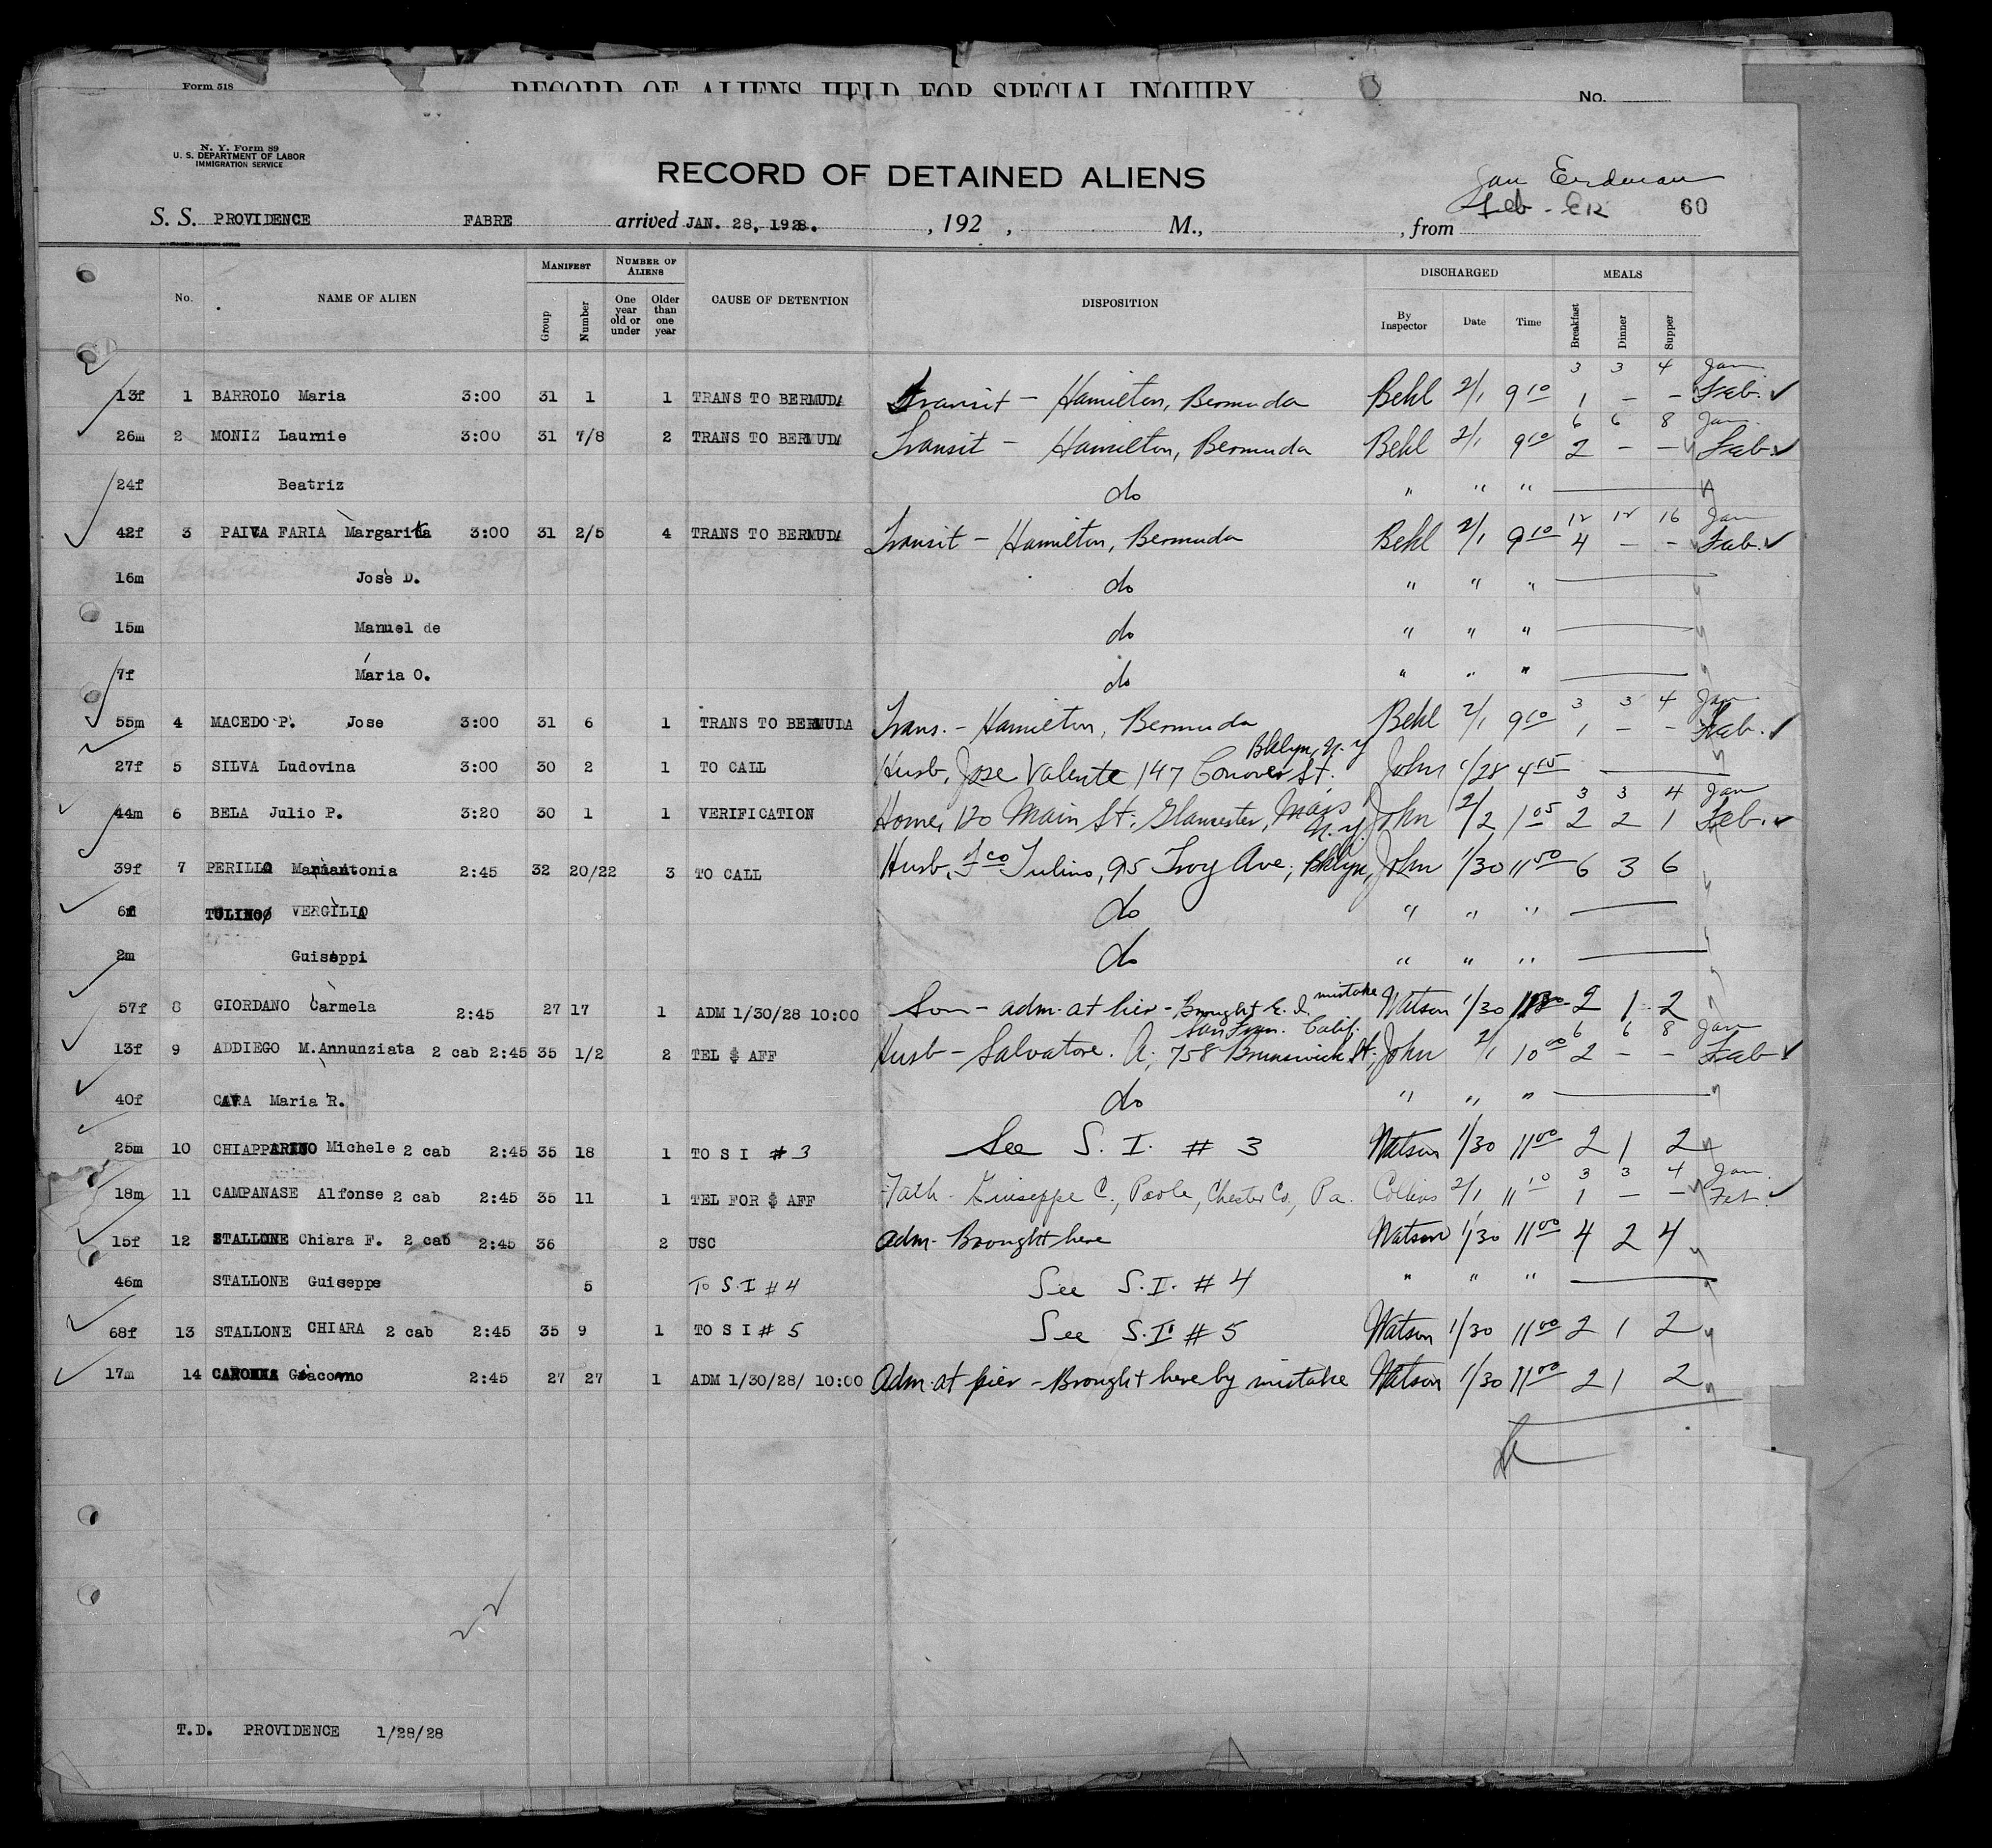 Form 518
RECORD OF ALIENS HELD FOR SPECIAL INQUIRY
No.
N. Y. Form 89
U. S. DEPARTMENT OF LABOR
IMMIGRATION SERVICE
RECORD OF DETAINED ALIENS
Jan Erdman
Feb - ER 60
S. S. PROVIDENCE FABRE arrived JAN. 28, 1928. , 192 , M., , from
No. NAME OF ALIEN MANIFEST Group Number NUMBER OF ALIENS One year old or under Older than one year CAUSE OF DETENTION DISPOSITION DISCHARGED By Inspector Date Time MEALS Breakfast Dinner Supper
3 3 4 Jan
13f 1 BARROLO Maria 3:00 31 1 1 TRANS TO BERMUDA Transit - Hamilton, Bermuda Behl 2/1 9 10 1 - - Feb.
6 6 8 Jan.
26m 2 MONIZ Laurnie 3:00 31 7/8 2 TRANS TO BERMUDA Transit - Hamilton, Bermuda Behl 2/1 9 10 2 - - Feb.
24f Beatriz do " " "
12 12 16 Jan
42f 3 PAIVA FARIA Margarita 3:00 31 2/5 4 TRANS TO BERMUDA Transit - Hamilton, Bermuda Behl 2/1 9 10 4 - - Feb.
16m Josè D. do " " "
15m Manuel de do " " "
7f Maria O. do " " "
3 3 4 Jan
55m 4 MACEDO P. Jose 3:00 31 6 1 TRANS TO BERMUDA Trans. - Hamilton, Bermuda Behl 2/1 9 10 1 - - Feb.
Bklyn, N.Y
27f 5 SILVA Ludovina 3:00 30 2 1 TO CALL Husb, Jose Valente 147 Conover St. John 1/28 4 15
3 3 4 Jan
44m 6 BELA Julio P. 3:20 30 1 1 VERIFICATION Home, 120 Main St. Gloucester, Mass John 2/2 1 05 2 2 1 Feb.
N.Y.
39f 7 PERILLO Mariantonia 2:45 32 20/22 3 TO CALL Husb, Fco Tulino, 95 Troy Ave, Bklyn, John 1/30 11 50 6 3 6
6f TULINO VERGILIA do " " "
2m Guiseppi do " " "
mistake
57f 8 GIORDANO Carmela 2:45 27 17 1 ADM 1/30/28 10:00 Son - adm. at pier - Brought E. I. Watson 1/30 2 1 2
San Fran. Calif. 6 6 8 Jan
13f 9 ADDIEGO M.Annunziata 2 cab 2:45 35 1/2 2 TEL $ AFF Husb - Salvatore. A. 758 Brunswick St. John 2/1 10 00 2 - - Feb
40f CAVA Maria R. do " " "
25m 10 CHIAPPARINO Michele 2 cab 2:45 35 18 1 TO S I # 3 See S. I. # 3 Watson 1/30 11 00 2 1 2
3 3 4 Jan.
18m 11 CAMPANASE Alfonse 2 cab 2:45 35 11 1 TEL FOR $ AFF Fath - Giuseppe C., Paole, Chester Co, Pa. Collins 2/1 11 10 1 - - Feb.
15f 12 STALLONE Chiara F. 2 cab 2:45 36 2 USC Adm. Brought here Watson 1/30 11 00 4 2 4
46m STALLONE Guiseppe 5 To S.I # 4 See S.I. # 4 " " "
68f 13 STALLONE CHIARA 2 cab 2:45 35 9 1 TO S I # 5 See S.I. # 5 Watson 1/30 11 00 2 1 2
17m 14 Giacomo 2:45 27 27 1 ADM 1/30/28/ 10:00 Adm. at pier - Brought here by mistake Watson 1/30 11 00 2 1 2
T.D. PROVIDENCE 1/28/28